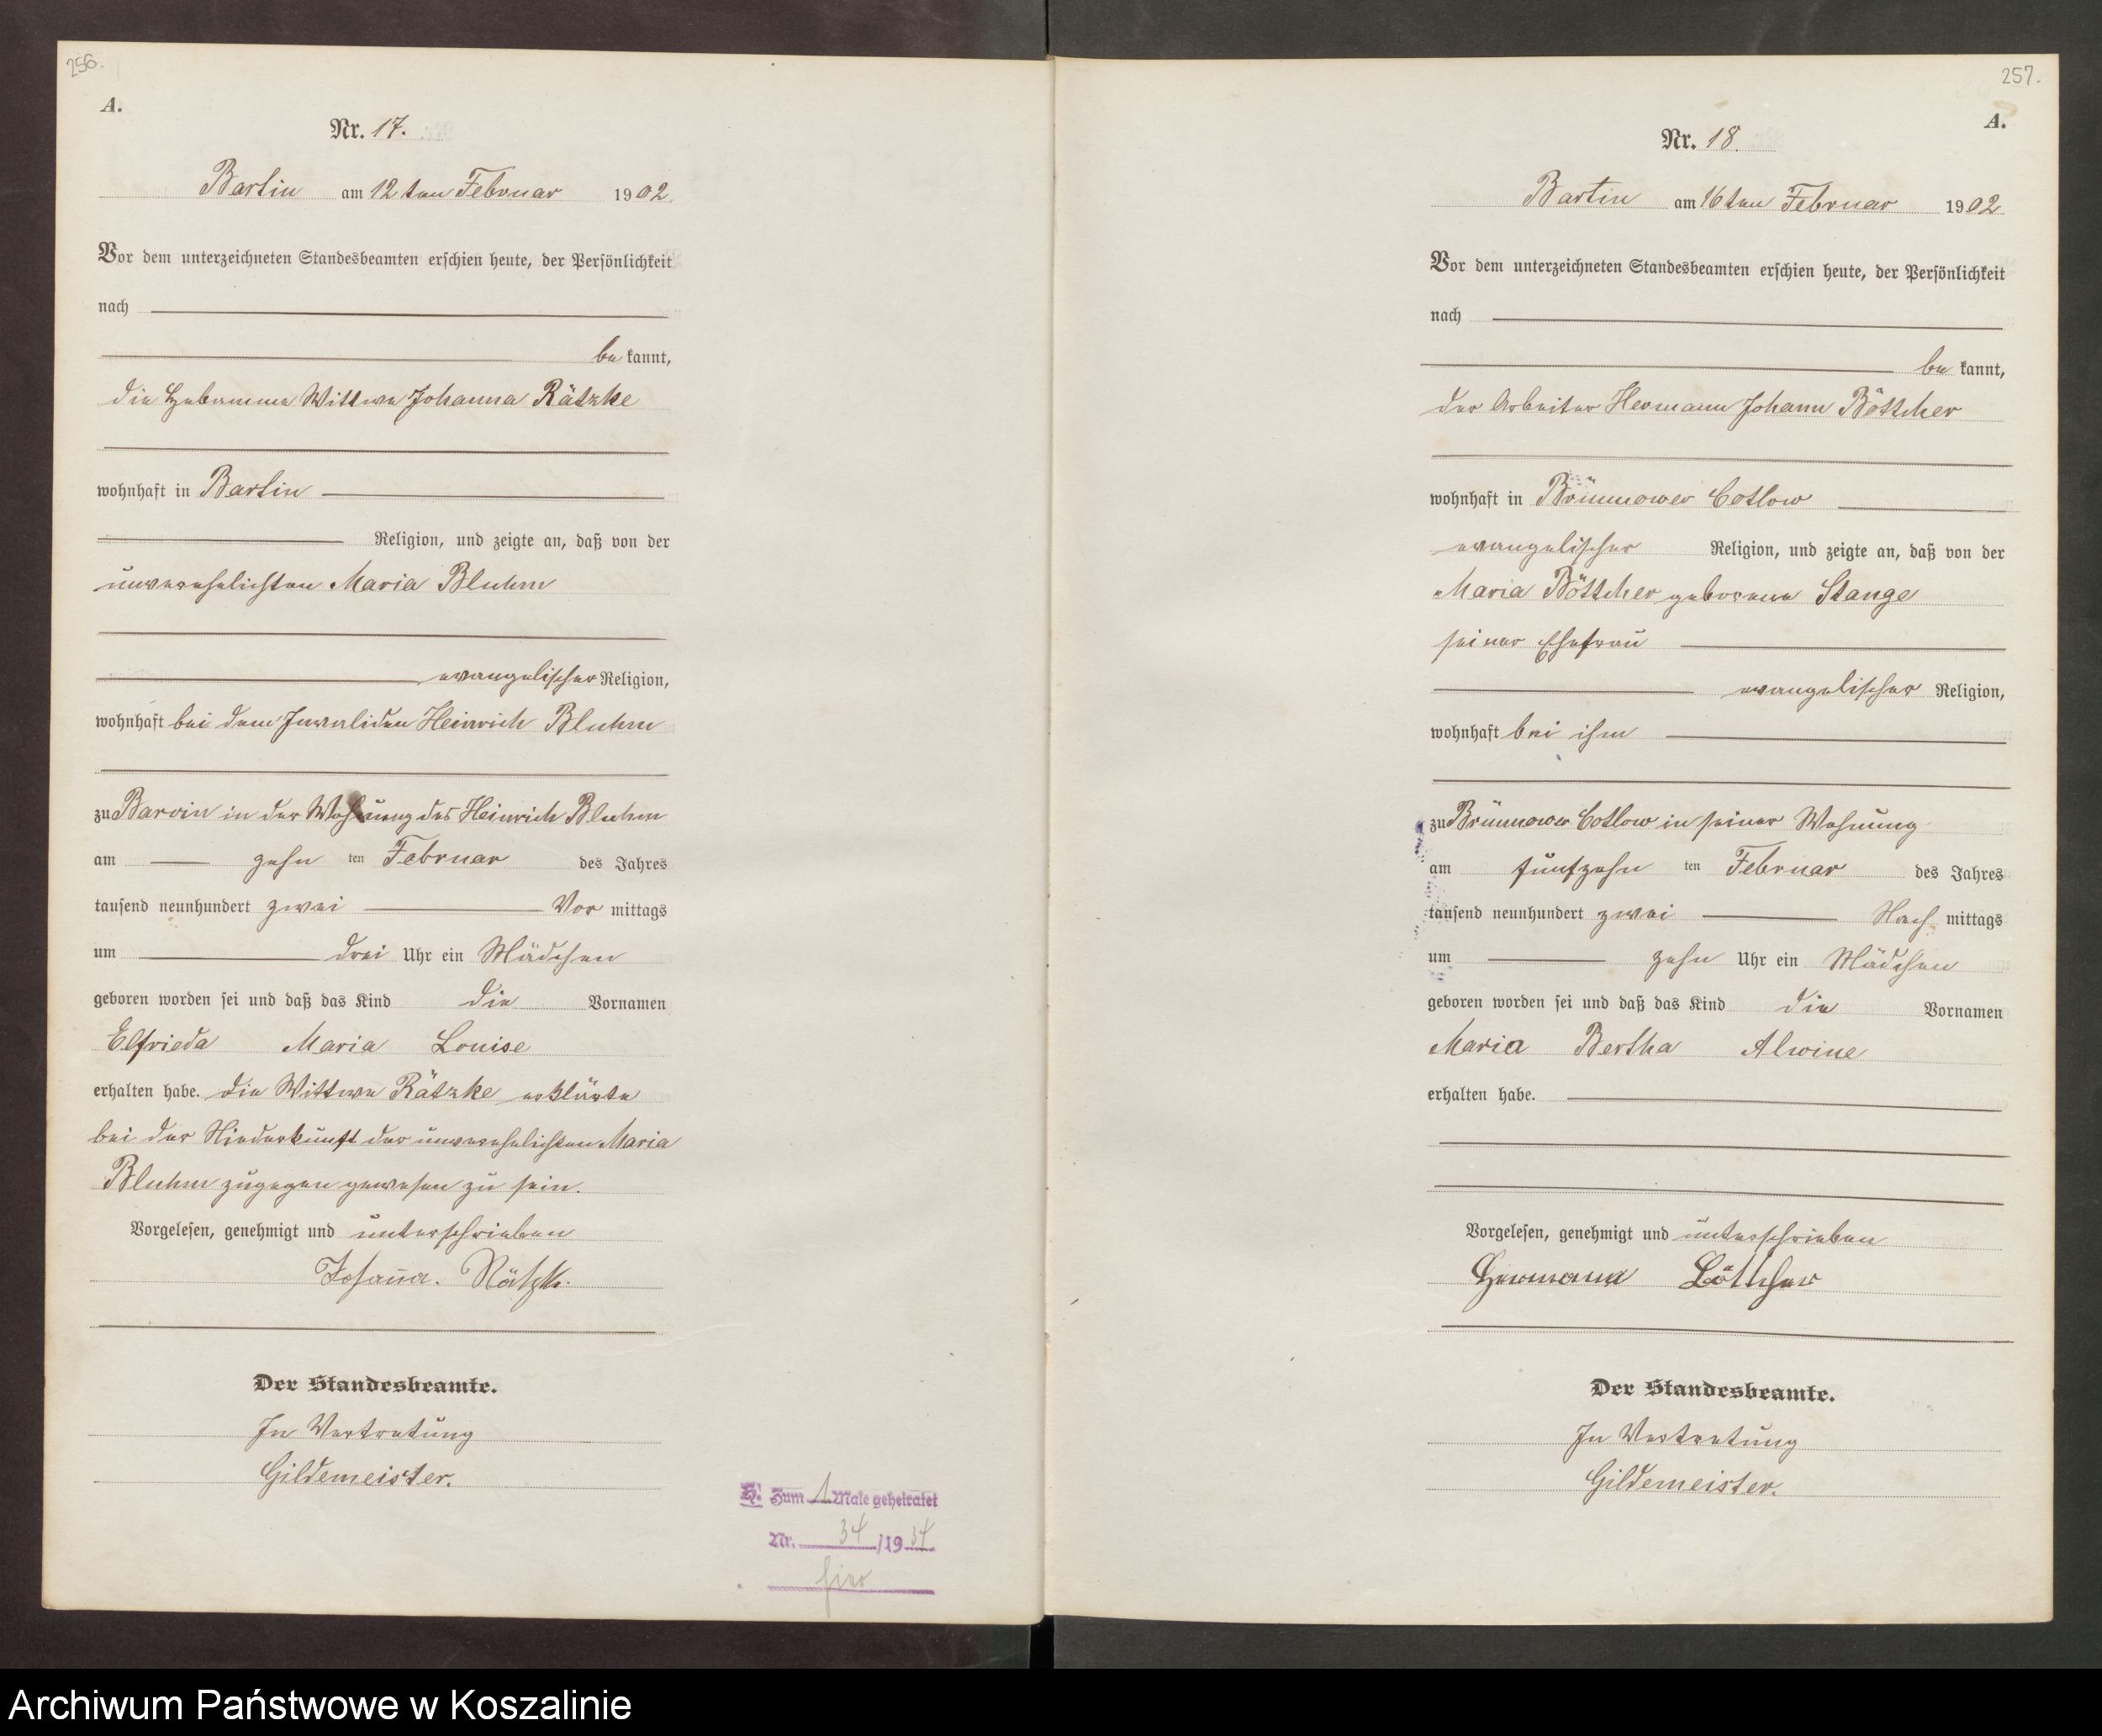 256.
A.
Nr. 17.
Bartin am 12ten Februar 1902.
Vor dem unterzeichneten Standesbeamten erschien heute, der Persönlichkeit
nach
be kannt,
die Hebamme Wittwe Johanna Rätzke
wohnhaft in Bartin
Religion, und zeigte an, daß von der
unverehelichten Maria Bluhm
evangelischer Religion,
wohnhaft bei dem Invaliden Heinrich Bluhm
zu Barvin in der Wohnung des Heinrich Bluhm
am zehn ten Februar des Jahres
tausend neunhundert zwei Vor mittags
um drei Uhr ein Mädchen
geboren worden sei und daß das Kind die Vornamen
Elfrieda Maria Louise
erhalten habe. die Wittwe Rätzke erklärte
bei der Niederkunft der unverehelichten Maria
Bluhm zugegen gewesen zu sein.
Vorgelesen, genehmigt und unterschrieben
Johana. Rätzke.
Der Standesbeamte.
In Vertretung
Gildemeister.
H. Zum 1 Male geheiratet
Nr. 34 /1934
hier
257.
A.
Nr. 18.
Bartin am 16ten Februar 1902
Vor dem unterzeichneten Standesbeamten erschien heute, der Persönlichkeit
nach
be kannt,
der Arbeiter Hermann Johann Böttcher
wohnhaft in Brünnower Cotlow
evangelischer Religion, und zeigte an, daß von der
Maria Böttcher geborene Stange
seiner Ehefrau
evangelischer Religion,
wohnhaft bei ihm
zu Brünnower Cotlow in seiner Wohnung
am fünfzehn ten Februar des Jahres
tausend neunhundert zwei Nach mittags
um zehn Uhr ein Mädchen
geboren worden sei und daß das Kind die Vornamen
Maria Bertha Alwine
erhalten habe.
Vorgelesen, genehmigt und unterschrieben
Hermann Böttcher
Der Standesbeamte.
In Vertretung
Gildemeister.
Archiwum Państwowe w Koszalinie